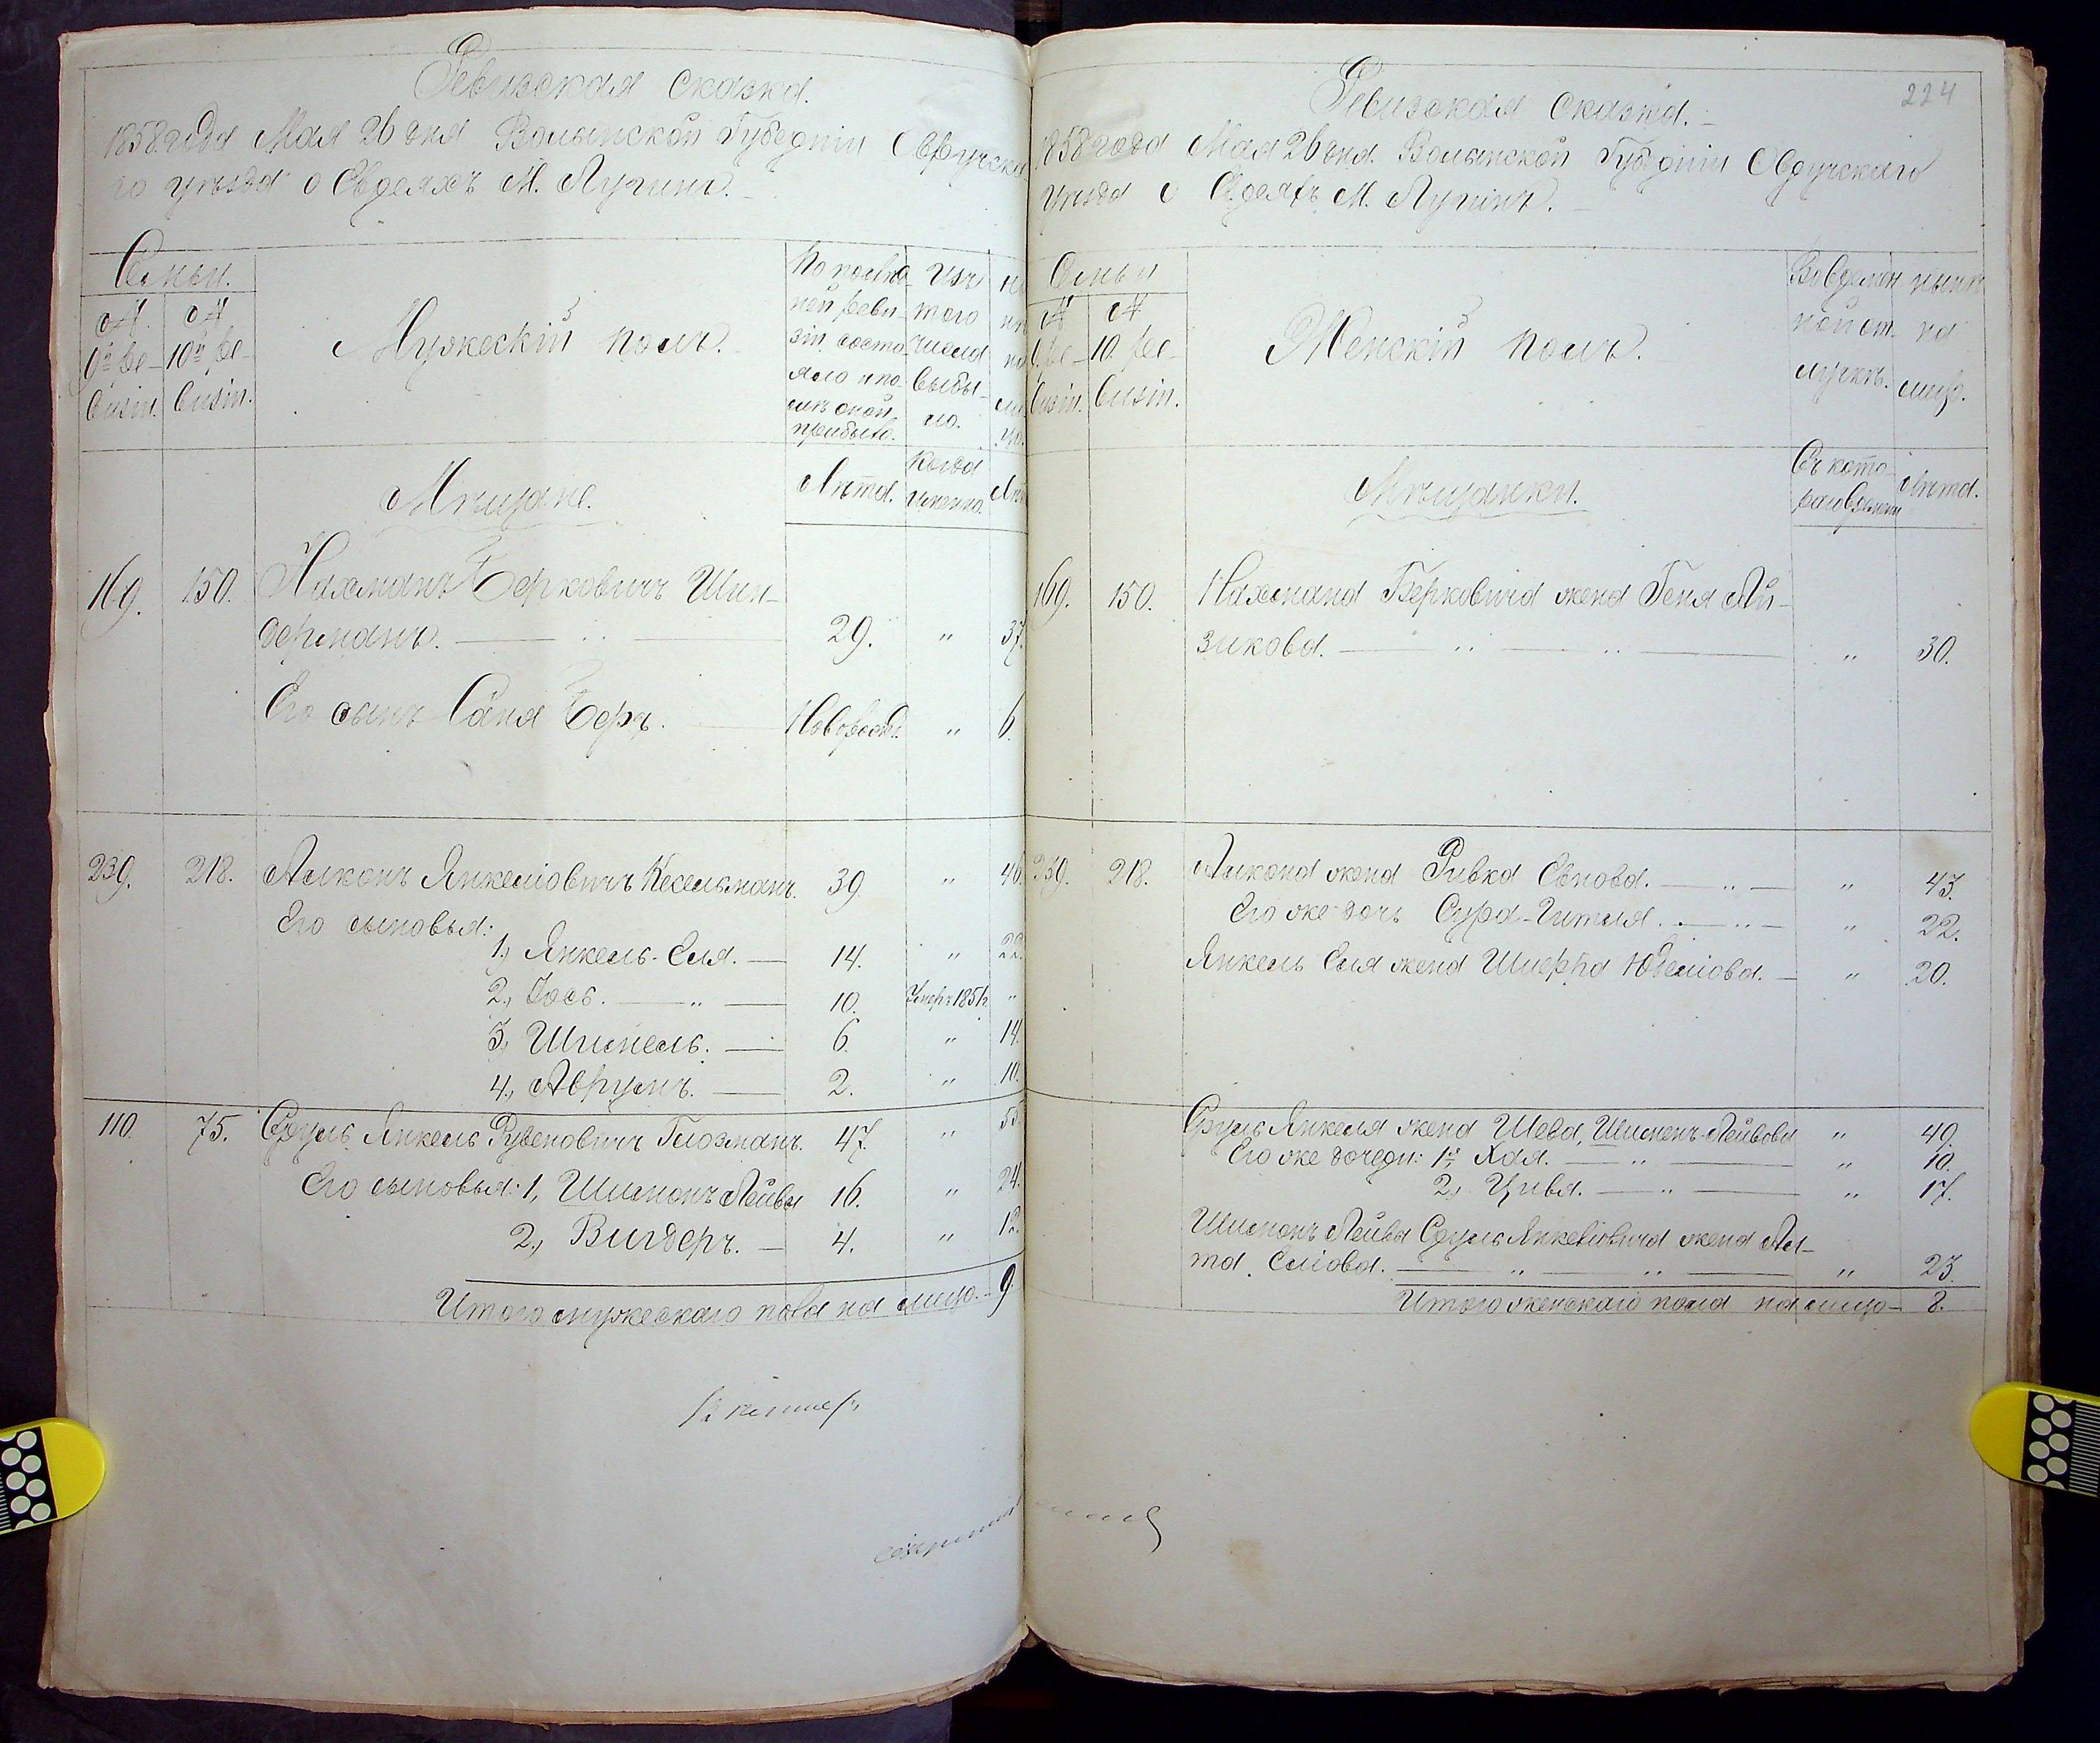 Ревизская сказка.
1858 года Мая 26 дня Волынской Губерніи Овручска
го уѣзда о Евреяхъ М. Лугинъ.
Семьи.
№ 9й ре- визіи.
№ 10й ре- визіи.
Мужескій полъ.
По послѣд-
ней реви-
зіи состо-
яло и по-
слѣ оной
прибыло.
Изъ
того
числа
выбы-
ло.
Мѣщане.
Лѣта.
Когда
именно.
169. 150. Нахманъ Берковичъ Шин-
дерманъ. 29. " 37.
Его сынъ Саня Беръ. Новорожд. " 6.
239. 218. Алконъ Янкеліовичъ Кесельманъ. 39 "
Его сыновья:
1., Янкель-Еля. 14. " 22.
2., Іось. " 10. Умеръ 185 "
3., Шимель. 6. " 14.
4., Аврумъ. 2. " 10.
110. 75. Сруль Янкель Рувеновичъ Глозманъ. 47. " 55.
Его сыновья: 1, Шимонъ Лейба 16. " 24.
2., Вигдеръ. 4. " 12.
Итого мужескаго пола на лицо. 9
224
Ревизская сказка.
1858 года Мая 26 дня. Волынской Губерніи Овручскаго
уѣзда о Евреяхъ М. Лугинъ.
Семьи
№ ре- визіи.
№ 10. ре- визіи.
Женскій полъ.
Во времен
ной от-
лучкѣ.
нынѣ
на
лицо.
Мѣщанки.
Съ кото-
раго времени
Лѣта.
169. 150. Нахмана Берковича жена Геня Ай-
зикова. " 30.
239. 218. Алкона жена Ривка " 43.
Его же дочь Сура-Гитля. " 22.
Янкель Еля жена Юделіова. " 20.
Сруль Янкеля жена Шева, Шимонъ-Лейбова " 49.
Его же дочери: 1я Хая. " 10.
2., Цивья. " 17.
Шимонъ Лейба Сруль Янкеліовича жена Ал-
та Еліова. " 23.
Итого женскаго пола на лицо 8.